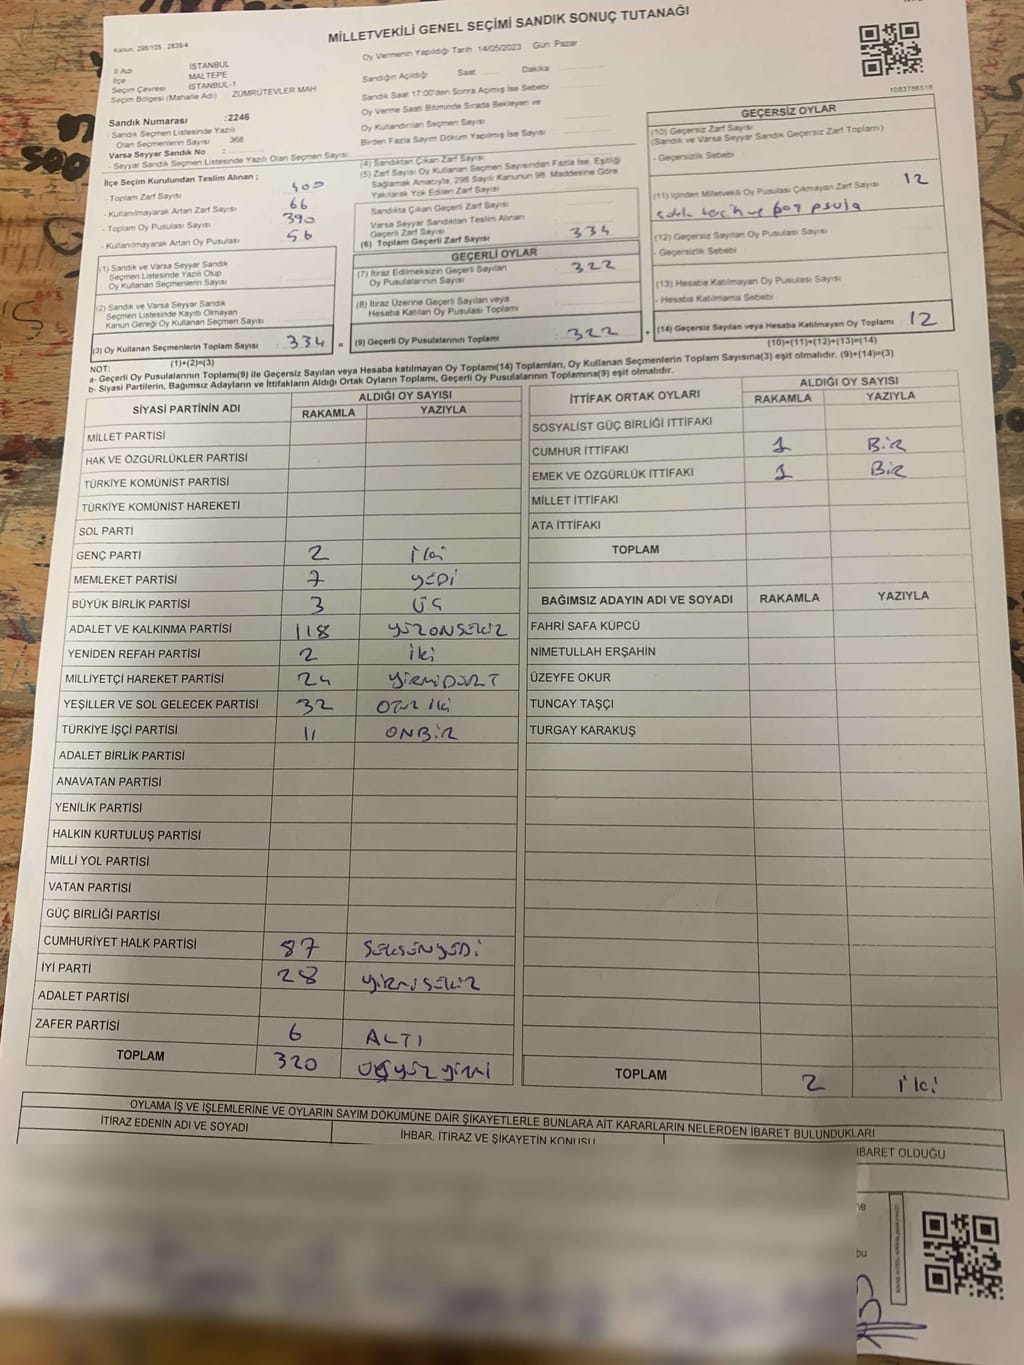 MİLLETVEKİLİ GENEL SEÇİMİ SANDIK SONUÇ TUTANAĞI
Kanun: 298/105, 2839/4
İl Adı İSTANBUL
İlçe MALTEPE
Seçim Çevresi İSTANBUL-1
Seçim Bölgesi (Mahalle Adı) ZÜMRÜTEVLER MAH
Sandık Numarası :2246
- Sandık Seçmen Listesinde Yazılı
Olan Seçmenlerin Sayısı 368
Varsa Seyyar Sandık No :
- Seyyar Sandık Seçmen Listesinde Yazılı Olan Seçmen Sayısı:
İlçe Seçim Kurulundan Teslim Alınan ;
- Toplam Zarf Sayısı 400
- Kullanılmayarak Artan Zarf Sayısı 66
- Toplam Oy Pusulası Sayısı 390
- Kullanılmayarak Artan Oy Pusulası 56
(1) Sandık ve Varsa Seyyar Sandık
Seçmen Listesinde Yazılı Olup
Oy Kullanan Seçmen Sayısı
(2) Sandık ve Varsa Seyyar Sandık
Seçmen Listesinde Kayıtlı Olmayan
Kanun Gereği Oy Kullanan Seçmen Sayısı
(3) Oy Kullanan Seçmenlerin Toplam Sayısı : 334 =
(1)+(2)=(3)
Oy Vermenin Yapıldığı Tarih 14/05/2023 Gün Pazar
Sandığın Açıldığı Saat Dakika
Sandık Saat 17:00'den Sonra Açılmış İse Sebebi
Oy Verme Saati Bitiminde Sırada Bekleyen ve
Oy Kullandırılan Seçmen Sayısı
Birden Fazla Sayım Döküm Yapılmış İse Sayısı
(4) Sandıktan Çıkan Zarf Sayısı
(5) Zarf Sayısı Oy Kullanan Seçmen Sayısından Fazla İse, Eşitliği
Sağlamak Amacıyla, 298 Sayılı Kanunun 98. Maddesine Göre
Yakılarak Yok Edilen Zarf Sayısı
Sandıkta Çıkan Geçerli Zarf Sayısı
Varsa Seyyar Sandıktan Teslim Alınan
Geçerli Zarf Sayısı
(6) Toplam Geçerli Zarf Sayısı 334
GEÇERLİ OYLAR
(7) İtiraz Edilmeksizin Geçerli Sayılan
Oy Pusulalarının Sayısı 322
(8) İtiraz Üzerine Geçerli Sayılan veya
Hesaba Katılan Oy Pusulası Toplamı
(9) Geçerli Oy Pusulalarının Toplamı 322 +
1083786518
GEÇERSİZ OYLAR
(10) Geçersiz Zarf Sayısı
(Sandık ve Varsa Seyyar Sandık Geçersiz Zarf Toplamı)
- Geçersizlik Sebebi
(11) İçinden Milletvekili Oy Pusulası Çıkmayan Zarf Sayısı 12
(12) Geçersiz Sayılan Oy Pusulası Sayısı
- Geçersizlik Sebebi
(13) Hesaba Katılmayan Oy Pusulası Sayısı
- Hesaba Katılmama Sebebi
(14) Geçersiz Sayılan veya Hesaba Katılmayan Oy Toplamı 12
(10)+(11)+(12)+(13)=(14)
NOT:
a- Geçerli Oy Pusulalarının Toplamı(9) ile Geçersiz Sayılan veya Hesaba katılmayan Oy Toplamı(14) Toplamları, Oy Kullanan Seçmenlerin Toplam Sayısına(3) eşit olmalıdır. (9)+(14)=(3)
b- Siyasi Partilerin, Bağımsız Adayların ve İttifakların Aldığı Ortak Oyların Toplamı, Geçerli Oy Pusulalarının Toplamına(9) eşit olmalıdır.
SİYASİ PARTİNİN ADI ALDIĞI OY SAYISI
RAKAMLA YAZIYLA
MİLLET PARTİSİ
HAK VE ÖZGÜRLÜKLER PARTİSİ
TÜRKİYE KOMÜNİST PARTİSİ
TÜRKİYE KOMÜNİST HAREKETİ
SOL PARTİ
GENÇ PARTİ 2 iki
MEMLEKET PARTİSİ 7 YEDİ
BÜYÜK BİRLİK PARTİSİ 3 ÜÇ
ADALET VE KALKINMA PARTİSİ 118 YÜZONSEKİZ
YENİDEN REFAH PARTİSİ 2 iki
MİLLİYETÇİ HAREKET PARTİSİ 24 YİRMİDÖRT
YEŞİLLER VE SOL GELECEK PARTİSİ 32 OTUZ İKİ
TÜRKİYE İŞÇİ PARTİSİ 11 ONBİR
ADALET BİRLİK PARTİSİ
ANAVATAN PARTİSİ
YENİLİK PARTİSİ
HALKIN KURTULUŞ PARTİSİ
MİLLİ YOL PARTİSİ
VATAN PARTİSİ
GÜÇ BİRLİĞİ PARTİSİ
CUMHURİYET HALK PARTİSİ 87 SEKSENYEDİ
İYİ PARTİ 28 YİRMİSEKİZ
ADALET PARTİSİ
ZAFER PARTİSİ 6 ALTI
TOPLAM 320 ÜÇYÜZ YİRMİ
İTTİFAK ORTAK OYLARI ALDIĞI OY SAYISI
RAKAMLA YAZIYLA
SOSYALİST GÜÇ BİRLİĞİ İTTİFAKI
CUMHUR İTTİFAKI 1 BİR
EMEK VE ÖZGÜRLÜK İTTİFAKI 1 BİR
MİLLET İTTİFAKI
ATA İTTİFAKI
TOPLAM
BAĞIMSIZ ADAYIN ADI VE SOYADI RAKAMLA YAZIYLA
FAHRİ SAFA KÜPCÜ
NİMETULLAH ERŞAHİN
ÜZEYFE OKUR
TUNCAY TAŞÇI
TURGAY KARAKUŞ
TOPLAM 2 iki
OYLAMA İŞ VE İŞLEMLERİNE VE OYLARIN SAYIM DÖKÜMÜNE DAİR ŞİKAYETLERLE BUNLARA AİT KARARLARIN NELERDEN İBARET BULUNDUKLARI
İTİRAZ EDENİN ADI VE SOYADI İHBAR, İTİRAZ VE ŞİKAYETİN KONUSU İBARET OLDUĞU
bu